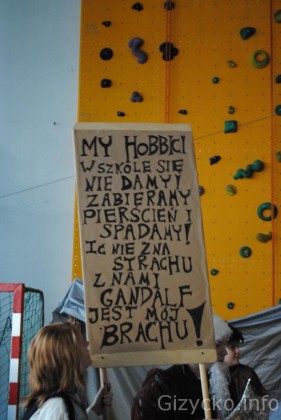 MY HOBBICI
W SZKÓLE SIĘ
NIE DAMY!
ZABIERAMY
PIERŚCIEŃ I
SPADAMY!
IG NIE ZNA
STRACHU
Z NAMI
GANDALF
JEST MÓJ
BRACHU!
Gizycko.Info